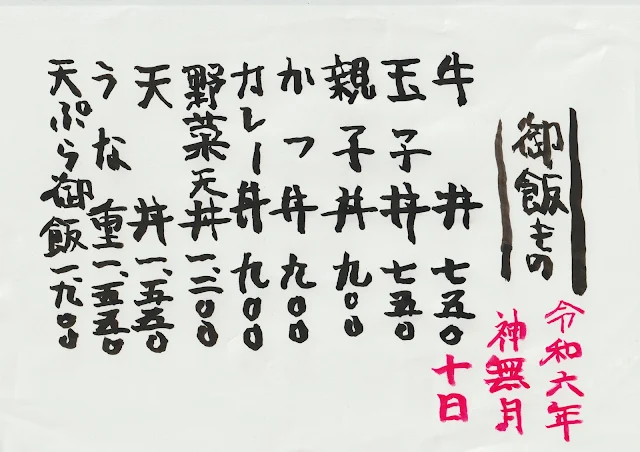 御飯もの
令和六年
神無月
十日
牛丼 七五〇
玉子丼 七五〇
親子丼 九〇〇
かつ丼 九〇〇
カレー丼 九〇〇
野菜天丼 一、二〇〇
天丼 一、五五〇
うな重 一、五五〇
天ぷら御飯 一、九〇〇